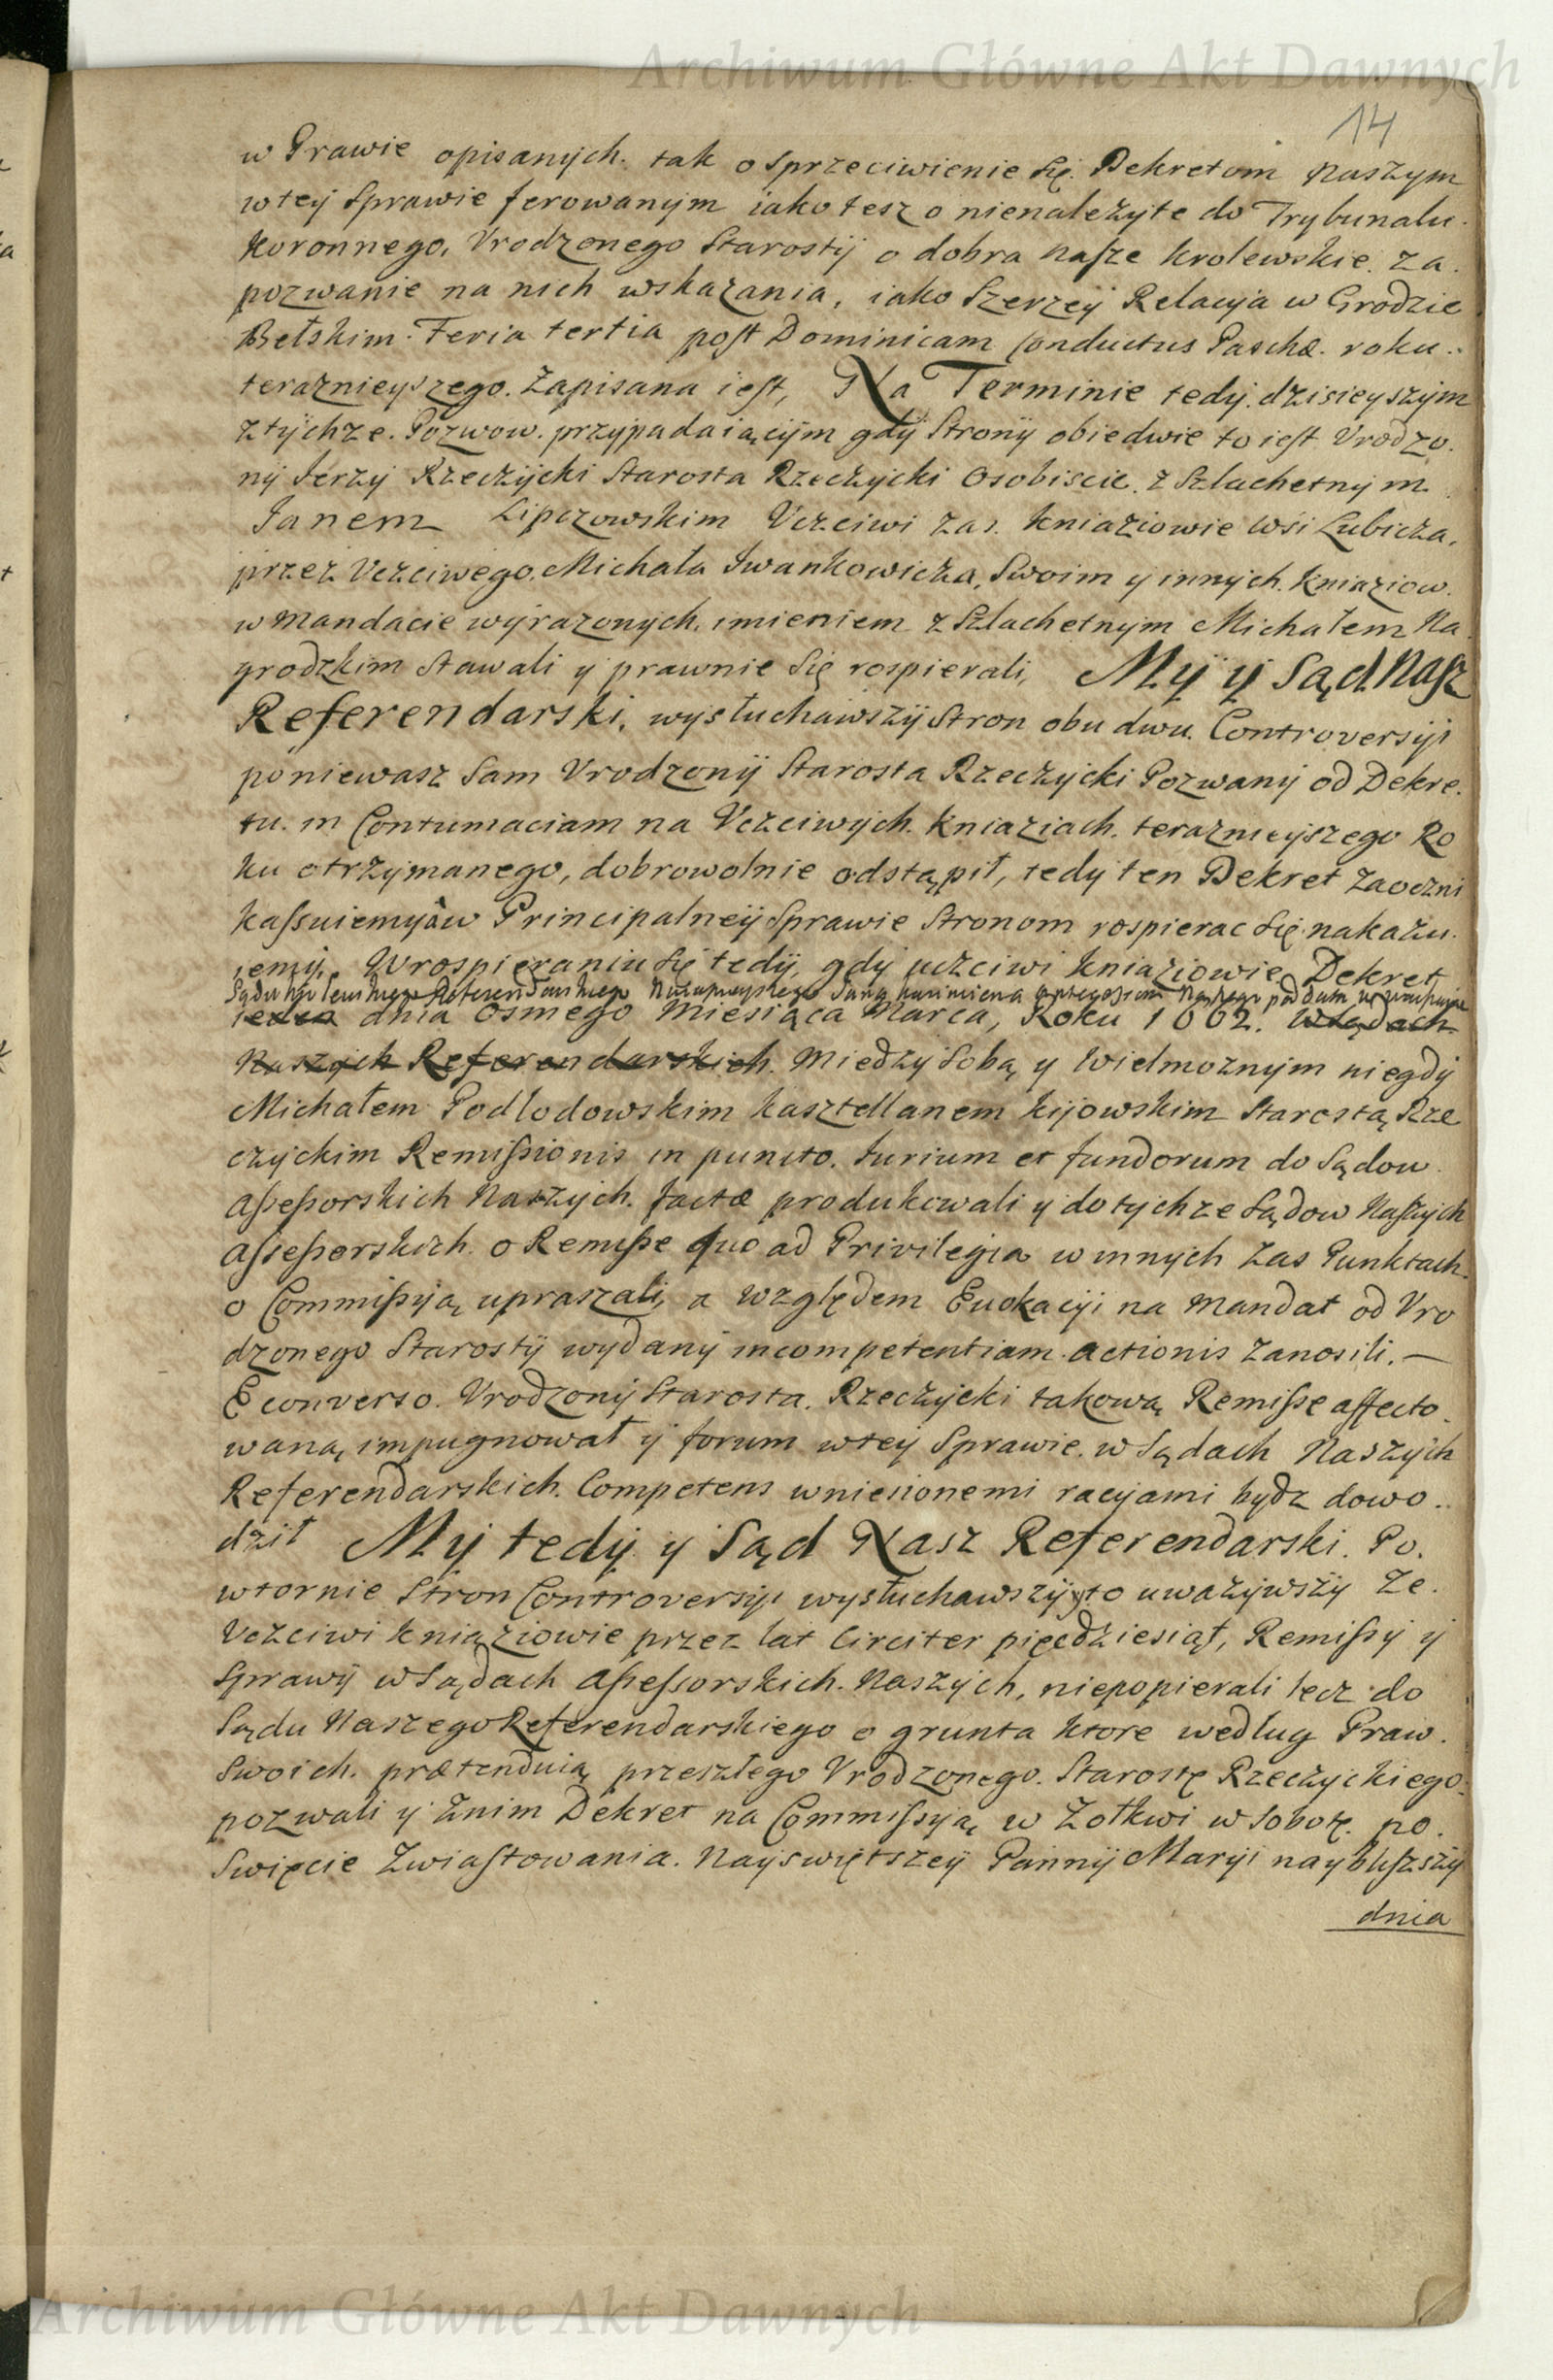 Archiwum Główne Akt Dawnych
14
w Prawie opisanych. tak o sprzeciwienie się Dekretom naszym
w tey sprawie ferowanym iako tesz o nienależyte do Trybunalu
Koronnego, Vrodzonego Starosty o dobra nasze krolewskie. za
pozwanie na nich wskazania, iako szerzey Relacyia w Grodzie
Bełskim Feria tertia post Dominicam Conductus Paschæ. roku
teraznieyszego. Zapisana iest, Na Terminie tedy dzisieyszym
z tychze. Pozwow. przypadaiącym gdy Strony obiedwie to iest Vrodzo.
ny Jerzy Rzeczycki Starosta Rzeczycki osobiscie. z Szlachetnym
Janem Lipczowskim Vczciwi zas. kniaziowie wsi Lubicza,
przez Vczciwego Michała Iwankowicza, swoim y innych. kniaziow.
w mandacie wyrazonych. imieniem z Szlachetnym Michałem Na
grodzkim stawali y prawnie się rospierali, My y Sąd Nasz
Referendarski, wysłuchawszy stron obu dwu. Controversyi
poniewasz sam Vrodzony Starosta Rzeczycki Pozwany od Dekre.
tu. in Contumaciam na Vczciwych. kniaziach. teraznieyszego Ro
ku otrzymanego, dobrowolnie odstąpił, tedy ten Dekret zaoczni
kassuiemy a w Principalney sprawie stronom rospierac się nakazu.
iemy. W rospieraniu się tedy, gdy uczciwi kniaziowie Dekret
Sądu Referendarskiego Jana Kazimierza
dnia osmego Miesiąca Marca, Roku 1662. w sądach
Naszych Referendarskich. Miedzy sobą y Wielmoznym niegdy
Michałem Podlodowskim kasztellanem kijowskim Starostą Rze
czyckim Remissionis in puncto. Iurium et fundorum do sądow
Assessorskich Naszych. factæ produkowali y do tychze sądow Naszych
Assessorskich. o Remisse quo ad Privilegia w innych zas Punktach
o Commissyią upraszali, a względem Euokacyi na Mandat od Vro
dzonego Starosty wydany incompetentiam actionis zanosili. —
E converso. Vrodzony Starosta. Rzeczycki takową Remisse affecto
waną impugnował y forum w tey sprawie. w sądach Naszych
Referendarskich. Competens wniesionemi racyiami bydz dowo..
dził My tedy y Sąd Nasz Referendarski. Po.
wtornie stron Controversyi wysłuchawszy y to uwazywszy ze.
Vczciwi kniaziowie przez lat circiter pięcdziesiąt, Remissy y
sprawy w sądach Assessorskich. Naszych, niepopierali lecz do
Sądu Naszego Referendarskiego o grunta ktore według Praw.
swoich. prætenduią przeszłego Vrodzonego. Starostę Rzeczyckiego
pozwali y znim Dekret na Commissyią w Zołkwi w sobotę. po.
Swięcie Zwiastowania. Nayswiętszey Panny Maryi naybliszszy
dnia
Archiwum Główne Akt Dawnych